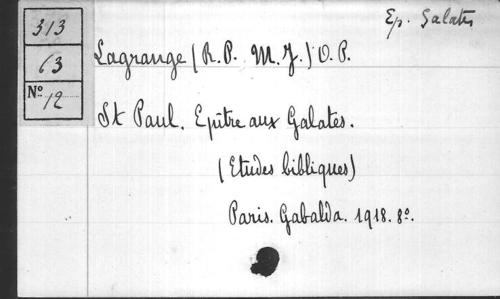 Ep. Galates
313
63
Nº 12
Lagrange (R.P. M.J.) O.P.
St Paul. Epître aux Galates.
(Etudes bibliques)
Paris. Gabalda. 1918. 8º.